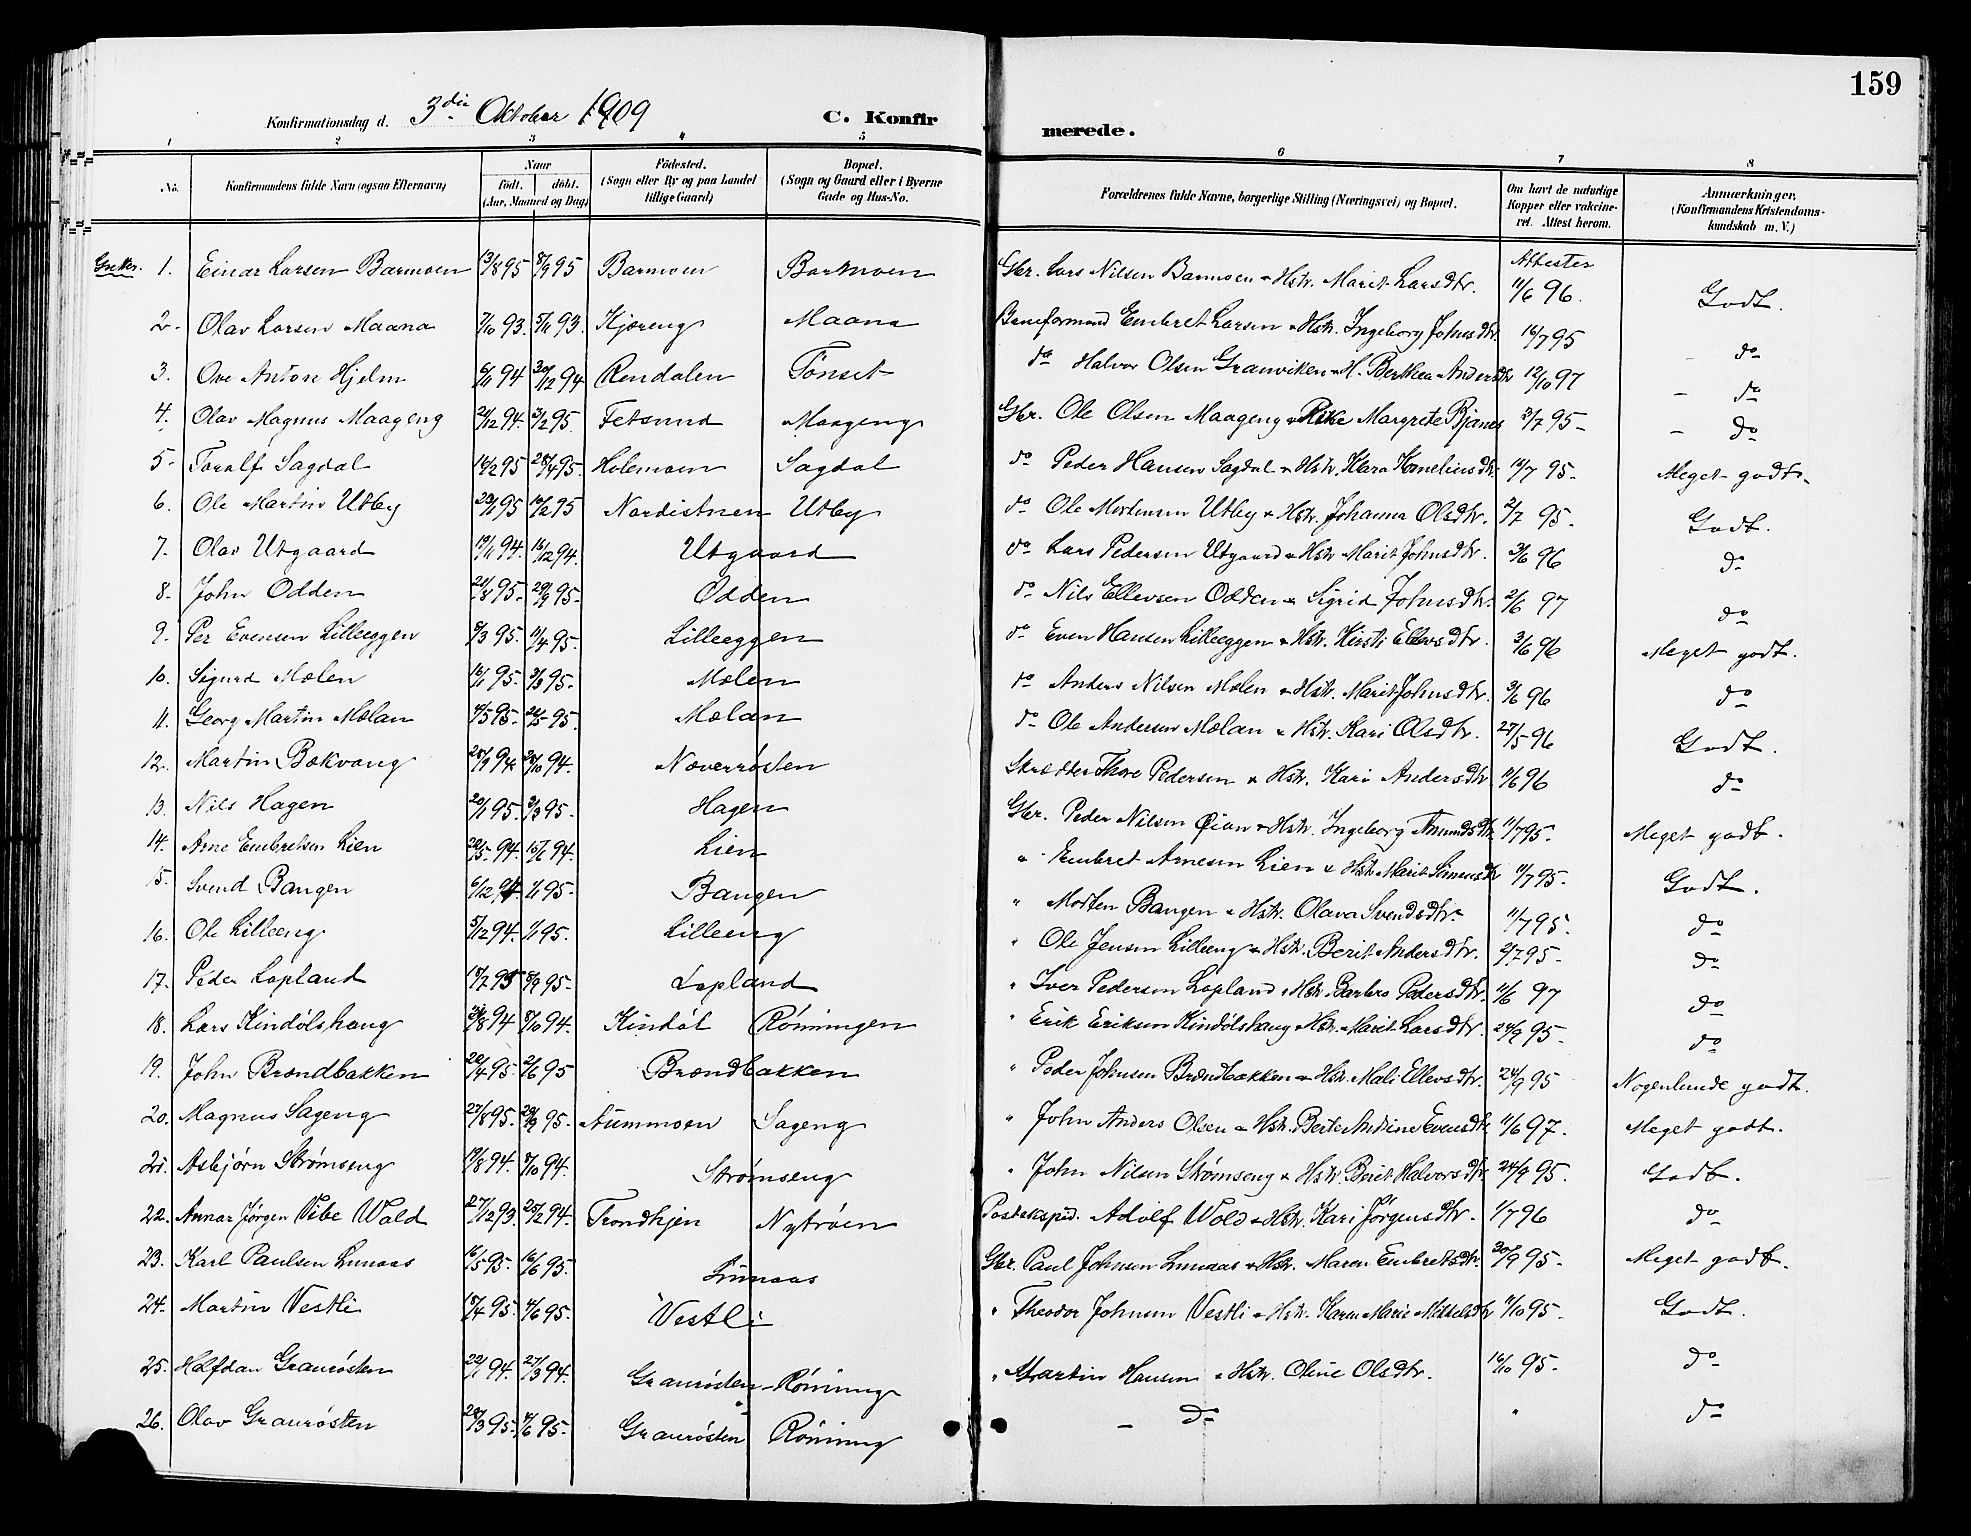 159
Konfirmationsdag d. 3die Oktober 1909 C. Konfirmerede.
1 2 3 5 6 7 8
No. Konfirmandens fulde Navn (ogsaa Efternavn) Naar født. døbt. (Aar, Maaned og Dag) Fødested. (Sogn eller By og paa Landet tillige Gaard) Bopæl. (Sogn og Gaard eller i Byerne Gade og Hus-No. Forældrenes fulde Navne, borgerlige Stilling (Næringsvei) og Bopæl. Om havt de naturlige Kopper eller vakcineret. Attest herom. Anmærkninger. (Konfirmandens Kristendomskundskab m. V.)
Attester
1. Einar Larsen Barmoen 13/8 95 8/9 95 Barmoen Barmoen Gbr. Lars Nilsen Barmoen & Hstr. Marit Larsdtr. 11/6 96. Godt.
2. Olav Larsen Maana 7/10 93. 5/11 93. Kjæreng Maana Baneformand Embret Larsen & Hstr. Ingeborg Johnsdtr. 16/7 95 do
3. Ove Anton Hjelm 6/11 94 30/12 94 Rendalen Tönset do Halvor Olsen Granviken & H. Berthea Andersdtr 12/10 97 do
4. Olav Magnus Maageng 21/12 94. 3/2 95. Fetsund Maageng Gbr. Ole Olsen Maageng & Margrete 21/7 95 - do
5. Toralf Sagdal 16/2 95 28/4 95. Holemoen Sagdal do Peder Hansen Sagdal & Hstr. Klara Korneliusdtr. 19/7 95 - Meget godt.
6. Ole Martin Utby 23/1 95 10/2 95 Nordistuen Utby do Ole Mortensen Utby & Hstr. Johanna Olsdtr. 2/7 95. Godt.
7. Olav Utgaard 19/11 94. 16/12 94. Utgaard do Lars Pedersen Utgaard & Hstr Marit Johnsdtr. 3/6 96 do
8. John Odden 21/8 95. 29/9 95. Odden do Nils Ellevsen Odden & Sigrid Johnsdtr. 2/6 97 do
9. Per Evensen Lilleeggen 8/3 95. 11/4 95. Lilleeggen do Even Hansen Lilleeggen & Hstr. Kirsti Ellevsdtr. 3/6 96 Meget godt.
10. Sigurd Mælen 16/1 95. 3/3 95. Mælen do Anders Nilsen Mælen & Hstr. Marit Johnsdtr. 3/6 96 do
11. Georg Martin Mælan 4/5 95. 26/5 95. Mælan do Ole Andersen Mælan & Hstr. Kari Olsdtr. 27/5 96 Godt.
12. Martin Bækvang 28/9 94 28/10 94. Næverrösten Skrædder Thore Pedersen & Hstr. Kari Andersdtr 11/6 96 do
13. Nils Hagen 20/1 95. 3/3 95. Hagen Gbr. Peder Nilsen Øian & Hstr. Ingeborg Amundsdtr. 11/7 95. Meget godt.
14. Arne Embretsen Lien 20/5 94. Lien " Embret Arnesen Lien & Hstr. Marit Simensdtr 11/7 95. Godt.
15. Svend Bangen 6/12 94 1/1 95. Bangen " Morten Bangen & Hstr. Olava Svendsdtr. 11/7 95. do
16. Ole Lilleeng 5/12 94. 1/1 95. Lilleeng " Ole Jensen Lilleeng & Hstr. Berit Andersdtr. 2/7 95. do
17. Peder Lopland 18/7 95 8/9 95. Lopland " Iver Pedersen Lopland & Hstr. Barbro Pedersdtr. 11/6 97 do
18. Lars Kindölshaug 24/8 94 8/10 94. Kindöl Röningen " Erik Eriksen Kindölshaug Hstr. Marit Larsdtr. 24/9 95. do
19. John Brændbakken 22/4 95. 2/6 95 Brændbakken " Peder Johnsen Brændbakken & Hstr. Mali Ellevsdtr. 24/9 95 Nogenlunde godt.
20. Magnus Sageng 27/8 95. 29/9 95. Aummoen Sageng " John Anders Olsen & Hstr. Berte Andrine Evensdtr 11/6 97. Meget godt.
21. Asbjørn Strømseng 19/8 94. 8/10 94. Strømseng " John Nilsen Strømseng & Hstr. Berit Halvorsdtr 24/9 95. Godt.
22. Annar Jørgen Vibe Wold 27/12 93. 25/2 94. Trondhjem Nytröen Postekspd. Adolf Wold & Hstr. Kari Jørgensdtr. 1/7 96 do
23. Karl Paulsen Lunaas 16/5 95. 16/6 95. Lunaas Gbr. Paul Johnsen Lunaas & Hstr. Maren Embretsdtr. 30/9 95. Meget godt.
24. Martin Vestli 18/4 95. 4/6 95. Vestli " Theodor Johnsen Vestli & Hstr. Karen Marie Mikkelsdtr 11/10 95. Godt.
25. Halfdan Graurösten 22/1 94. 27/3 94. Graurösten - Röning " Martin Hansen & Hstr. Oline Olsdtr. 16/10 95. do
26. Olav Graurösten 28/3 95. 4/6 95. Graurösten Röning - do " do